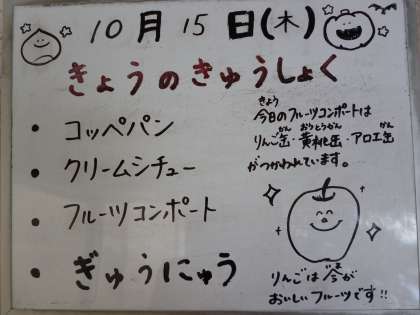 10月15日(木)
きょうのきゅうしょく
• コッペパン
• クリームシチュー
• フルーツコンポート
• ぎゅうにゅう
きょう
今日のフルーツコンポートは
かん おうとうかん かん
りんご缶・黄桃缶・アロエ缶
がつかわれています。
りんごは今が
おいしいフルーツです!!